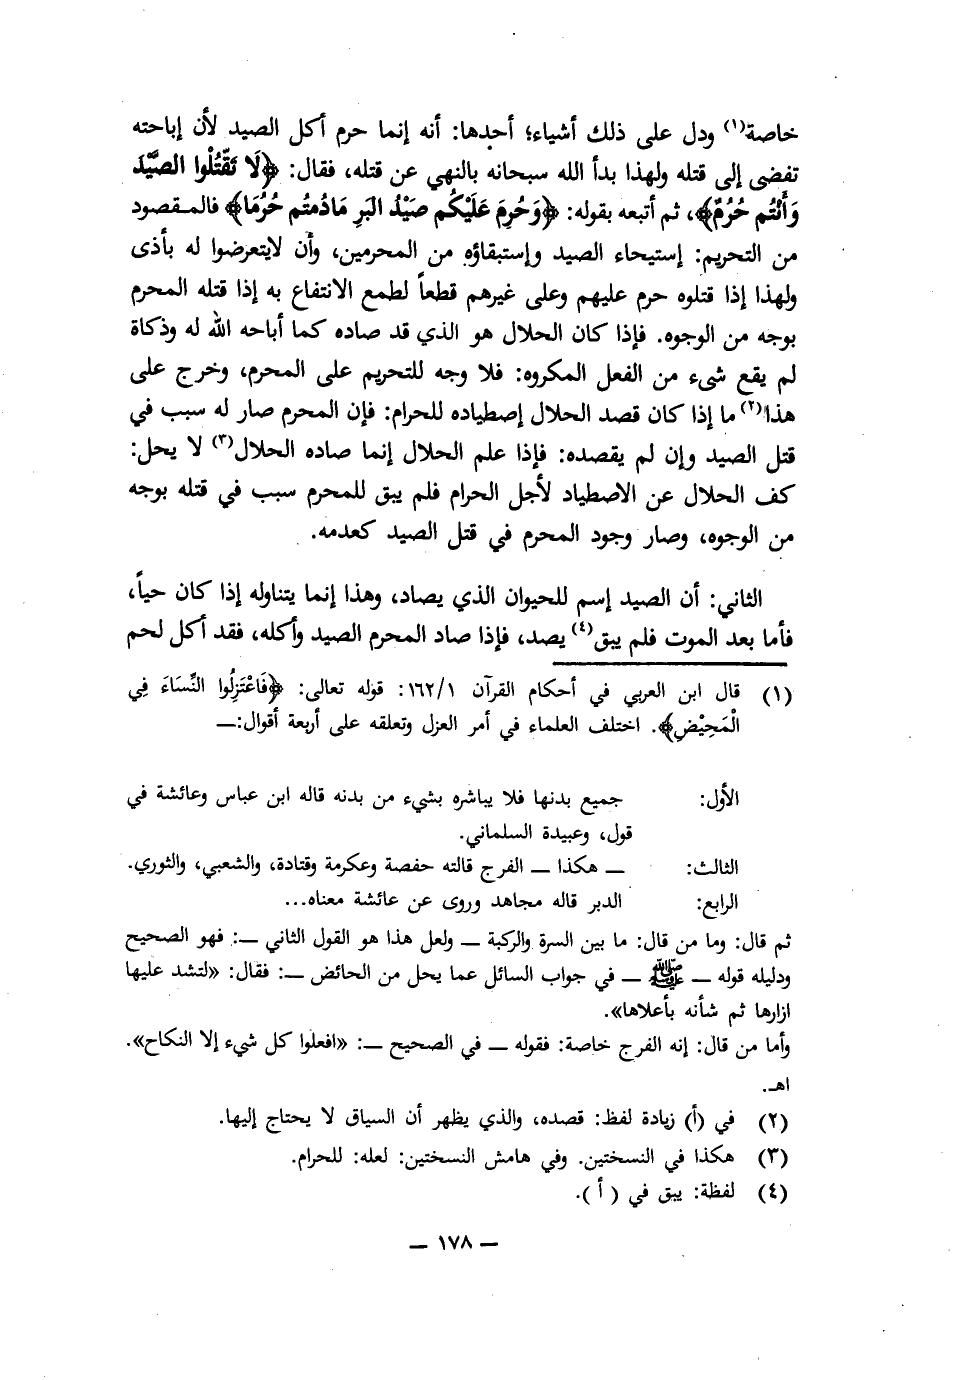 خاصة(١) ودل على ذلك أشياء؛ أحدها: أنه إنما حرم أكل الصيد لأن إباحته
تفضى إلى قتله ولهذا بدأ الله سبحانه بالنهي عن قتله، فقال: ﴿لَا تَقْتُلُوا الصَّيْدَ
وَأَنْتُم حُرُمٌ﴾، ثم أتبعه بقوله: ﴿وَحُرِمَ عَلَيْكُم صَيْدُ البَرِ مَادُمتُم حُرُمَا﴾ فالمقصود
من التحريم: إستيحاء الصيد وإستبقاؤه من المحرمين، وأن لايتعرضوا له بأذى
ولهذا إذا قتلوه حرم عليهم وعلى غيرهم قطعاً لطمع الانتفاع به إذا قتله المحرم
بوجه من الوجوه. فإذا كان الحلال هو الذي قد صاده كما أباحه الله له وذكاة
لم يقع شىء من الفعل المكروه: فلا وجه للتحريم على المحرم، وخرج على
هذا(٢) ما إذا كان قصد الحلال إصطياده للحرام: فإن المحرم صار له سبب في
قتل الصيد وإن لم يقصده: فإذا علم الحلال إنما صاده الحلال(٣) لا يحل:
كف الحلال عن الاصطياد لأجل الحرام فلم يبق للمحرم سبب في قتله بوجه
من الوجوه، وصار وجود المحرم في قتل الصيد كعدمه.
الثاني: أن الصيد إسم للحيوان الذي يصاد، وهذا إنما يتناوله إذا كان حياً،
فأما بعد الموت فلم يبق(٤) يصد، فإذا صاد المحرم الصيد وأكله، فقد أكل لحم
(١) قال ابن العربي في أحكام القرآن ١٦٢/١: قوله تعالى: ﴿فَاعْتَزِلُوا النِّسَاءَ فِي
الْمَحِيْضِ﴾. اختلف العلماء في أمر العزل وتعلقه على أربعة أقوال:ــ
الأول: جميع بدنها فلا يباشره بشيء من بدنه قاله ابن عباس وعائشة في
قول، وعبيدة السلماني.
الثالث: ــ هكذا ــ الفرج قالته حفصة وعكرمة وقتادة، والشعبي، والثوري.
الرابع: الدبر قاله مجاهد وروى عن عائشة معناه...
ثم قال: وما من قال: ما بين السرة والركبة ــ ولعل هذا هو القول الثاني ــ: فهو الصحيح
ودليله قوله ــ ﷺ ــ في جواب السائل عما يحل من الحائض ــ: فقال: «لتشد عليها
ازارها ثم شأنه بأعلاها».
وأما من قال: إنه الفرج خاصة: فقوله ــ في الصحيح ــ: «افعلوا كل شيء إلا النكاح».
اهـ.
(٢) في (أ) زيادة لفظ: قصده، والذي يظهر أن السياق لا يحتاج إليها.
(٣) هكذا في النسختين. وفي هامش النسختين: لعله: للحرام.
(٤) لفظة: يبق في ( أ ).
ــ ١٧٨ ــ